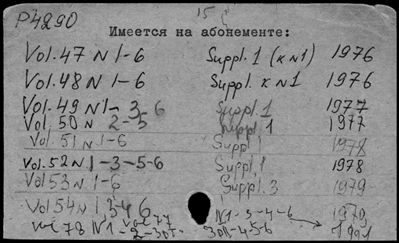 P4290
15
Имеется на абонементе:
Vol. 47 N 1-6 Suppl. 1 (к N1) 1976
Vol. 48 N 1-6 Suppl. к N1 1976
Vol. 49 N 1- 3-6 Suppl. 1 1977
Vol. 50 N 2-5 Suppl. 1 1977
Vol. 51 N 1-6 Suppl. 1978
Vol. 52 N 1-3-5-6 Suppl. 1 1978
Vol 53 N 1-6 Suppl. 3 1979
Vol 54 N 1 3 4 6 N1-3-4-6 1979
78 N1 1991